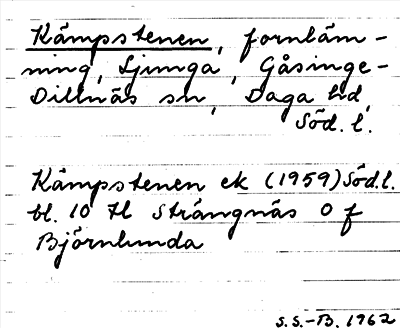 Kämpstenen, fornläm-
ning, Ljunga, Gåsinge-
Dillnäs sn, Daga hd,
Söd. l.
Kämpstenen ek (1959) Söd. l.
bl. 10 Strängnäs O f
Björnlunda
S.S.-B. 1962